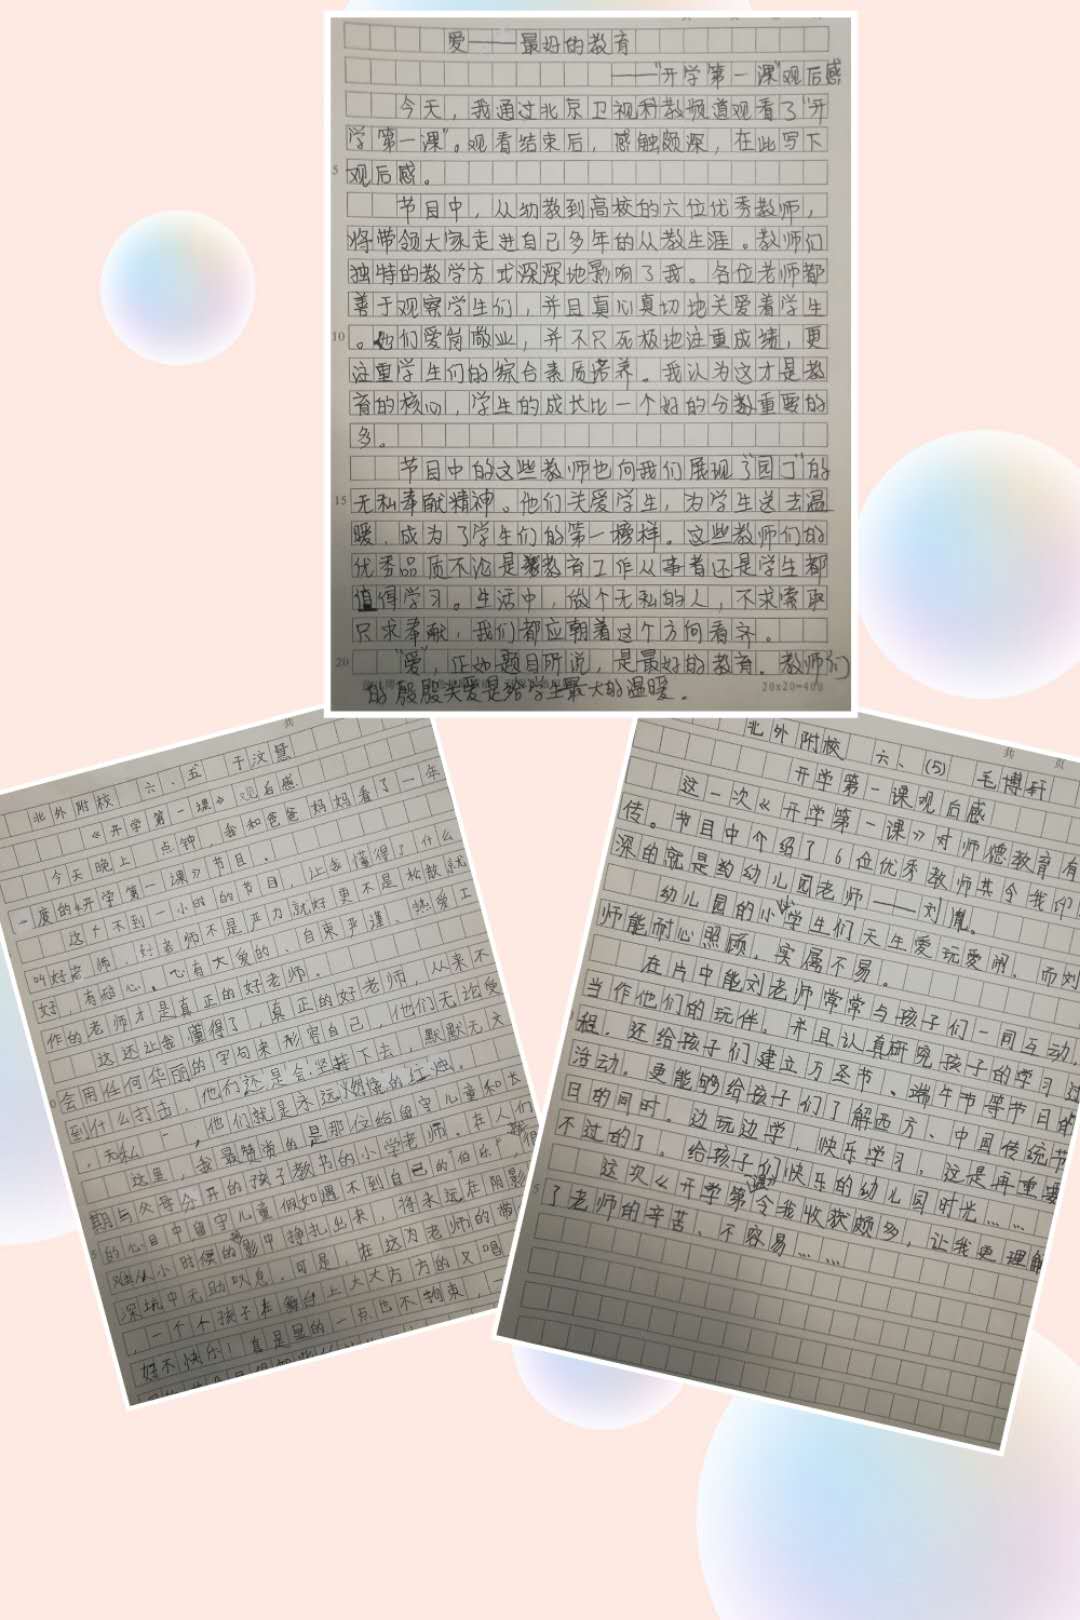 爱——最好的教育
——“开学第一课”观后感
今天，我通过北京卫视科教频道观看了“开
学第一课”。观看结束后，感触颇深，在此写下
观后感。
节目中，从幼教到高校的六位优秀教师，
将带领大家走进自己多年的从教生涯。教师们
独特的教学方式深深地影响了我。各位老师都
善于观察学生们，并且真心真切地关爱着学生
。他们爱岗敬业，并不只死板地注重成绩，更
注重学生们的综合素质培养。我认为这才是教
育的核心，学生的成长比一个好的分数重要的
多。
节目中的这些教师也向我们展现了“园丁”的
无私奉献精神。他们关爱学生，为学生送去温
暖，成为了学生们的第一榜样。这些教师们的
优秀品质不论是教育工作从事者还是学生都
值得学习。生活中，做个无私的人，不求索取
只求奉献，我们都应朝着这个方向看齐。
“爱”，正如题目所说，是最好的教育。教师们
的殷殷关爱是给学生最大的温暖。
20x20=400
共
北外附校 六、五 于汶
《开学第一课》观后感
今天晚上 点钟，我和爸爸妈妈看了一年
一度的《开学第一课》节目。
这个不到一小时的节目，让我懂得了什么
叫好老师，好老师不是严厉就好更不是松散就
好，有耐心，心有大爱的、自束严谨、热爱工
作的老师才是真正的好老师。
这还让我懂得了，真正的好老师，从来不
会用任何华丽的字句来形容自己，他们无论受
到什么打击，他们还是会坚持下去，默默无文
，无私 ，他们就是永远燃烧的红烛。
这里，我最赞赏的是那位给留守儿童和长
期与父母分开的孩子教书的小学老师。在人们
的心目中留守儿童假如遇不到自己的“伯乐”，很
难从小时候的影中挣扎出来，得永远在阴影
深坑中无助叹息，可是，在这为老师的带
，一个个孩子在舞台上大大方方的又唱
好不快乐！真是显的一点也不拘束，
共 页
北外附校 六、(5) 毛博轩
开学第一课观后感
这一次《开学第一课》对师德教育有
传。节目中介绍了6位优秀教师其令我印
深的就是的幼儿园老师——刘胤。
幼儿园的小学生们天生爱玩爱闹，而刘
师能耐心照顾，实属不易。
在片中能刘老师常常与孩子们一同互动，
当作他们的玩伴，并且认真研究孩子的学习过
程，还给孩子们建立万圣节、端午节等节日的
活动。更能够给孩子们了解西方、中国传统节
日的同时。边玩边学，快乐学习。这是再重要
不过的了。给孩子们快乐的幼儿园时光……
这次《开学第一课》令我收获颇多，让我更理解
了老师的辛苦、不容易……